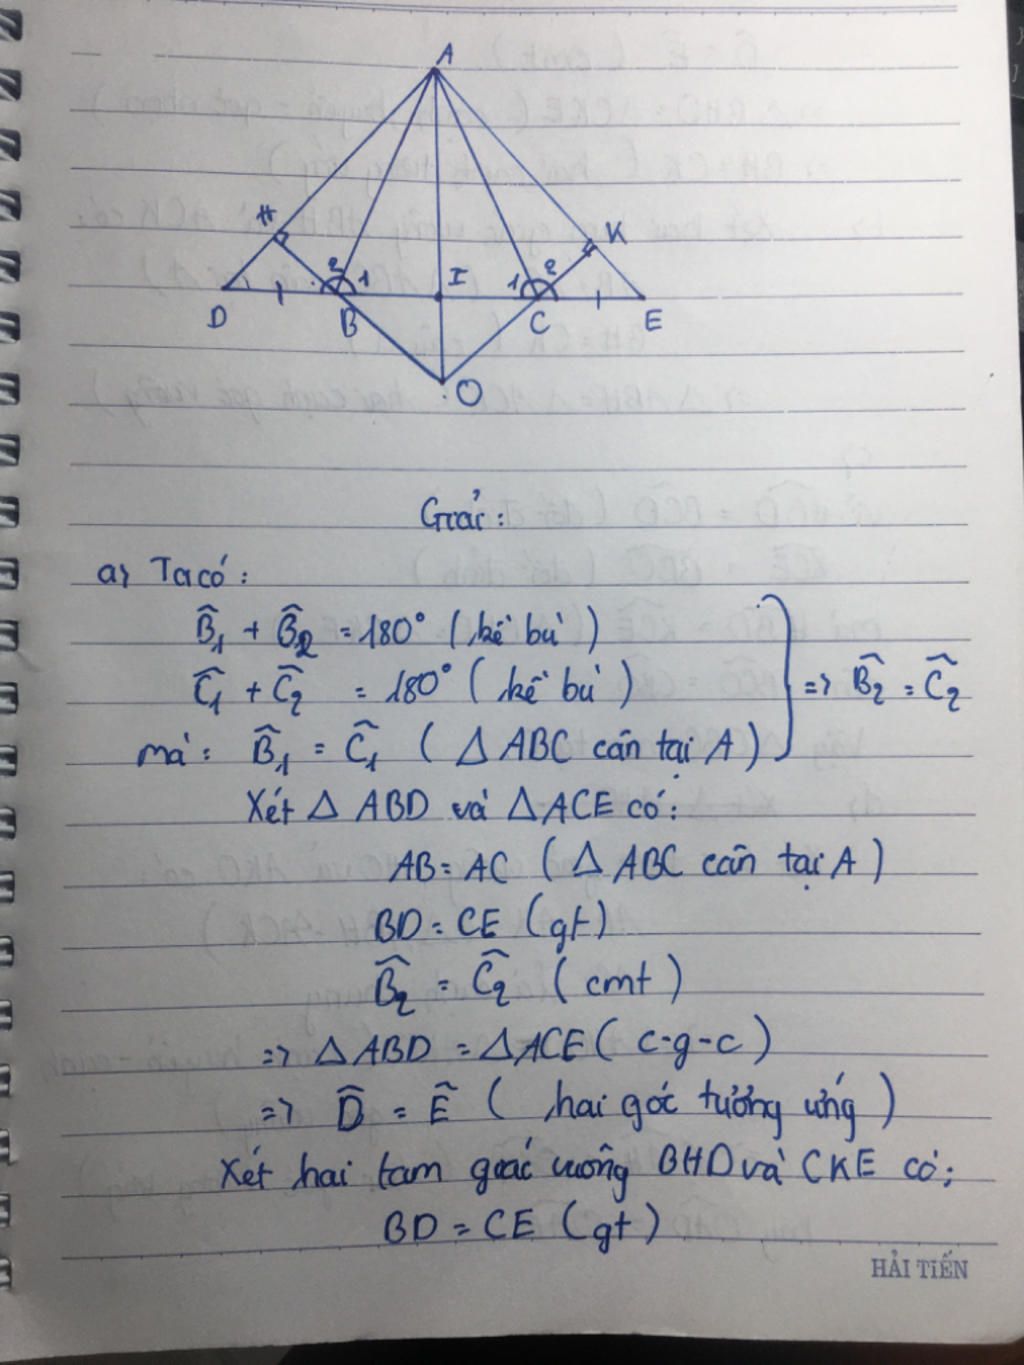 A
H
K
2
1
I
1
2
D
B
C
E
O
Giải:
a) Ta có:
B̂₁ + B̂₂ = 180° (kề bù)
Ĉ₁ + Ĉ₂ = 180° (kề bù)
=> B̂₂ = Ĉ₂
mà: B̂₁ = Ĉ₁ (△ ABC cân tại A)
Xét △ ABD và △ ACE có:
AB = AC (△ ABC cân tại A)
BD = CE (gt)
B̂₂ = Ĉ₂ (cmt)
=> △ ABD = △ ACE (c-g-c)
=> D̂ = Ê (hai góc tương ứng)
Xét hai tam giác vuông BHD và CKE có:
BD = CE (gt)
HẢI TIẾN